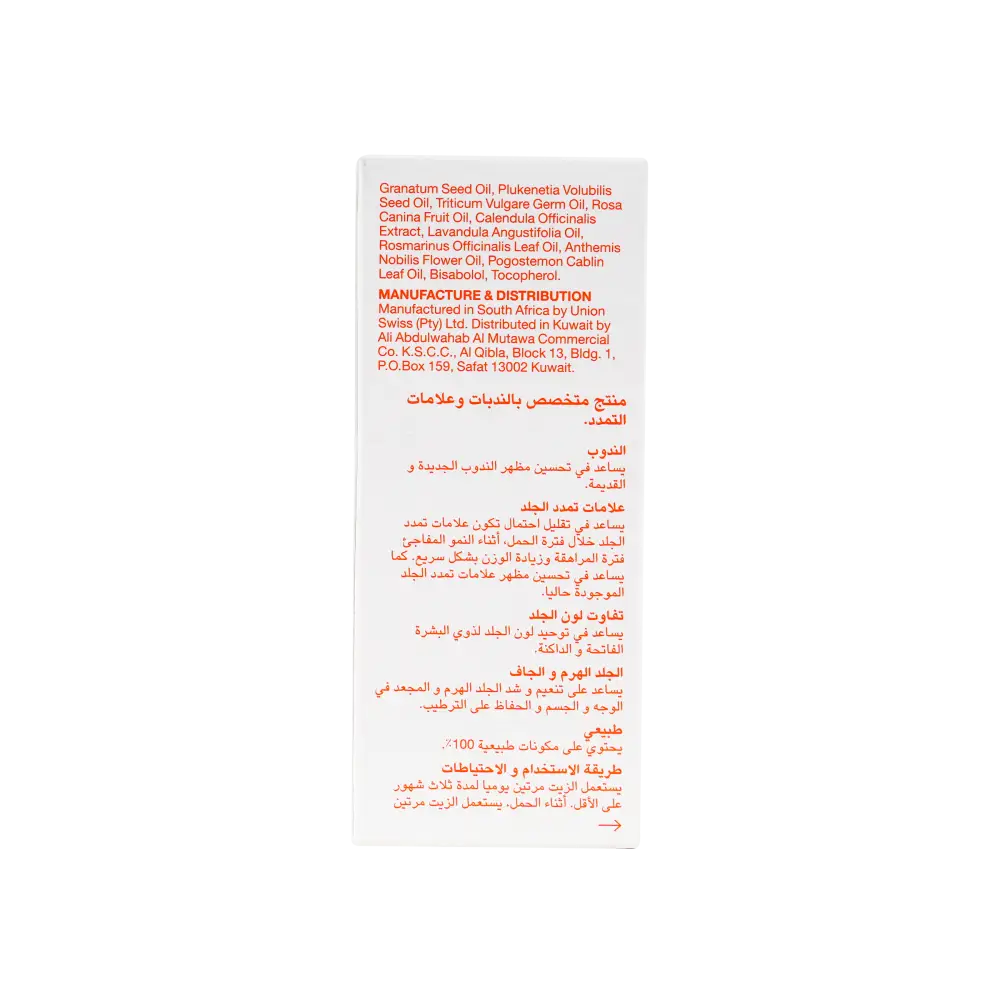 Granatum Seed Oil, Plukenetia Volubilis
Seed Oil, Triticum Vulgare Germ Oil, Rosa
Canina Fruit Oil, Calendula Officinalis
Extract, Lavandula Angustifolia Oil,
Rosmarinus Officinalis Leaf Oil, Anthemis
Nobilis Flower Oil, Pogostemon Cablin
Leaf Oil, Bisabolol, Tocopherol.
MANUFACTURE & DISTRIBUTION
Manufactured in South Africa by Union
Swiss (Pty) Ltd. Distributed in Kuwait by
Ali Abdulwahab Al Mutawa Commercial
Co. K.S.C.C., Al Qibla, Block 13, Bldg. 1,
P.O.Box 159, Safat 13002 Kuwait.
منتج متخصص بالندبات وعلامات
التمدد.
الندوب
يساعد في تحسين مظهر الندوب الجديدة و
القديمة.
علامات تمدد الجلد
يساعد في تقليل احتمال تكون علامات تمدد
الجلد خلال فترة الحمل، أثناء النمو المفاجئ
فترة المراهقة وزيادة الوزن بشكل سريع. كما
يساعد في تحسين مظهر علامات تمدد الجلد
الموجودة حاليا.
تفاوت لون الجلد
يساعد في توحيد لون الجلد لذوي البشرة
الفاتحة و الداكنة.
الجلد الهرم و الجاف
يساعد على تنعيم و شد الجلد الهرم و المجعد في
الوجه و الجسم و الحفاظ على الترطيب.
طبيعي
يحتوي على مكونات طبيعية 100٪.
طريقة الاستخدام و الاحتياطات
يستعمل الزيت مرتين يوميا لمدة ثلاث شهور
على الأقل. أثناء الحمل، يستعمل الزيت مرتين